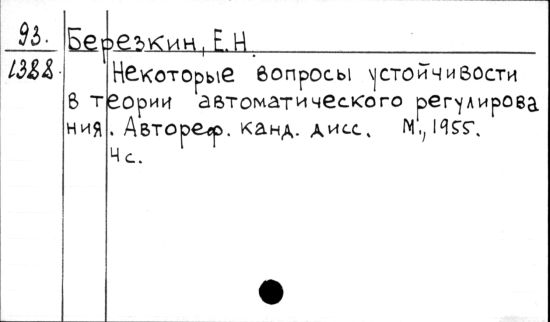 93. Березкин, Е.Н.
1388. Некоторые вопросы устойчивости
в теории автоматического регулирова
ния. Автореф. канд. дисс. М., 1955.
4 с.